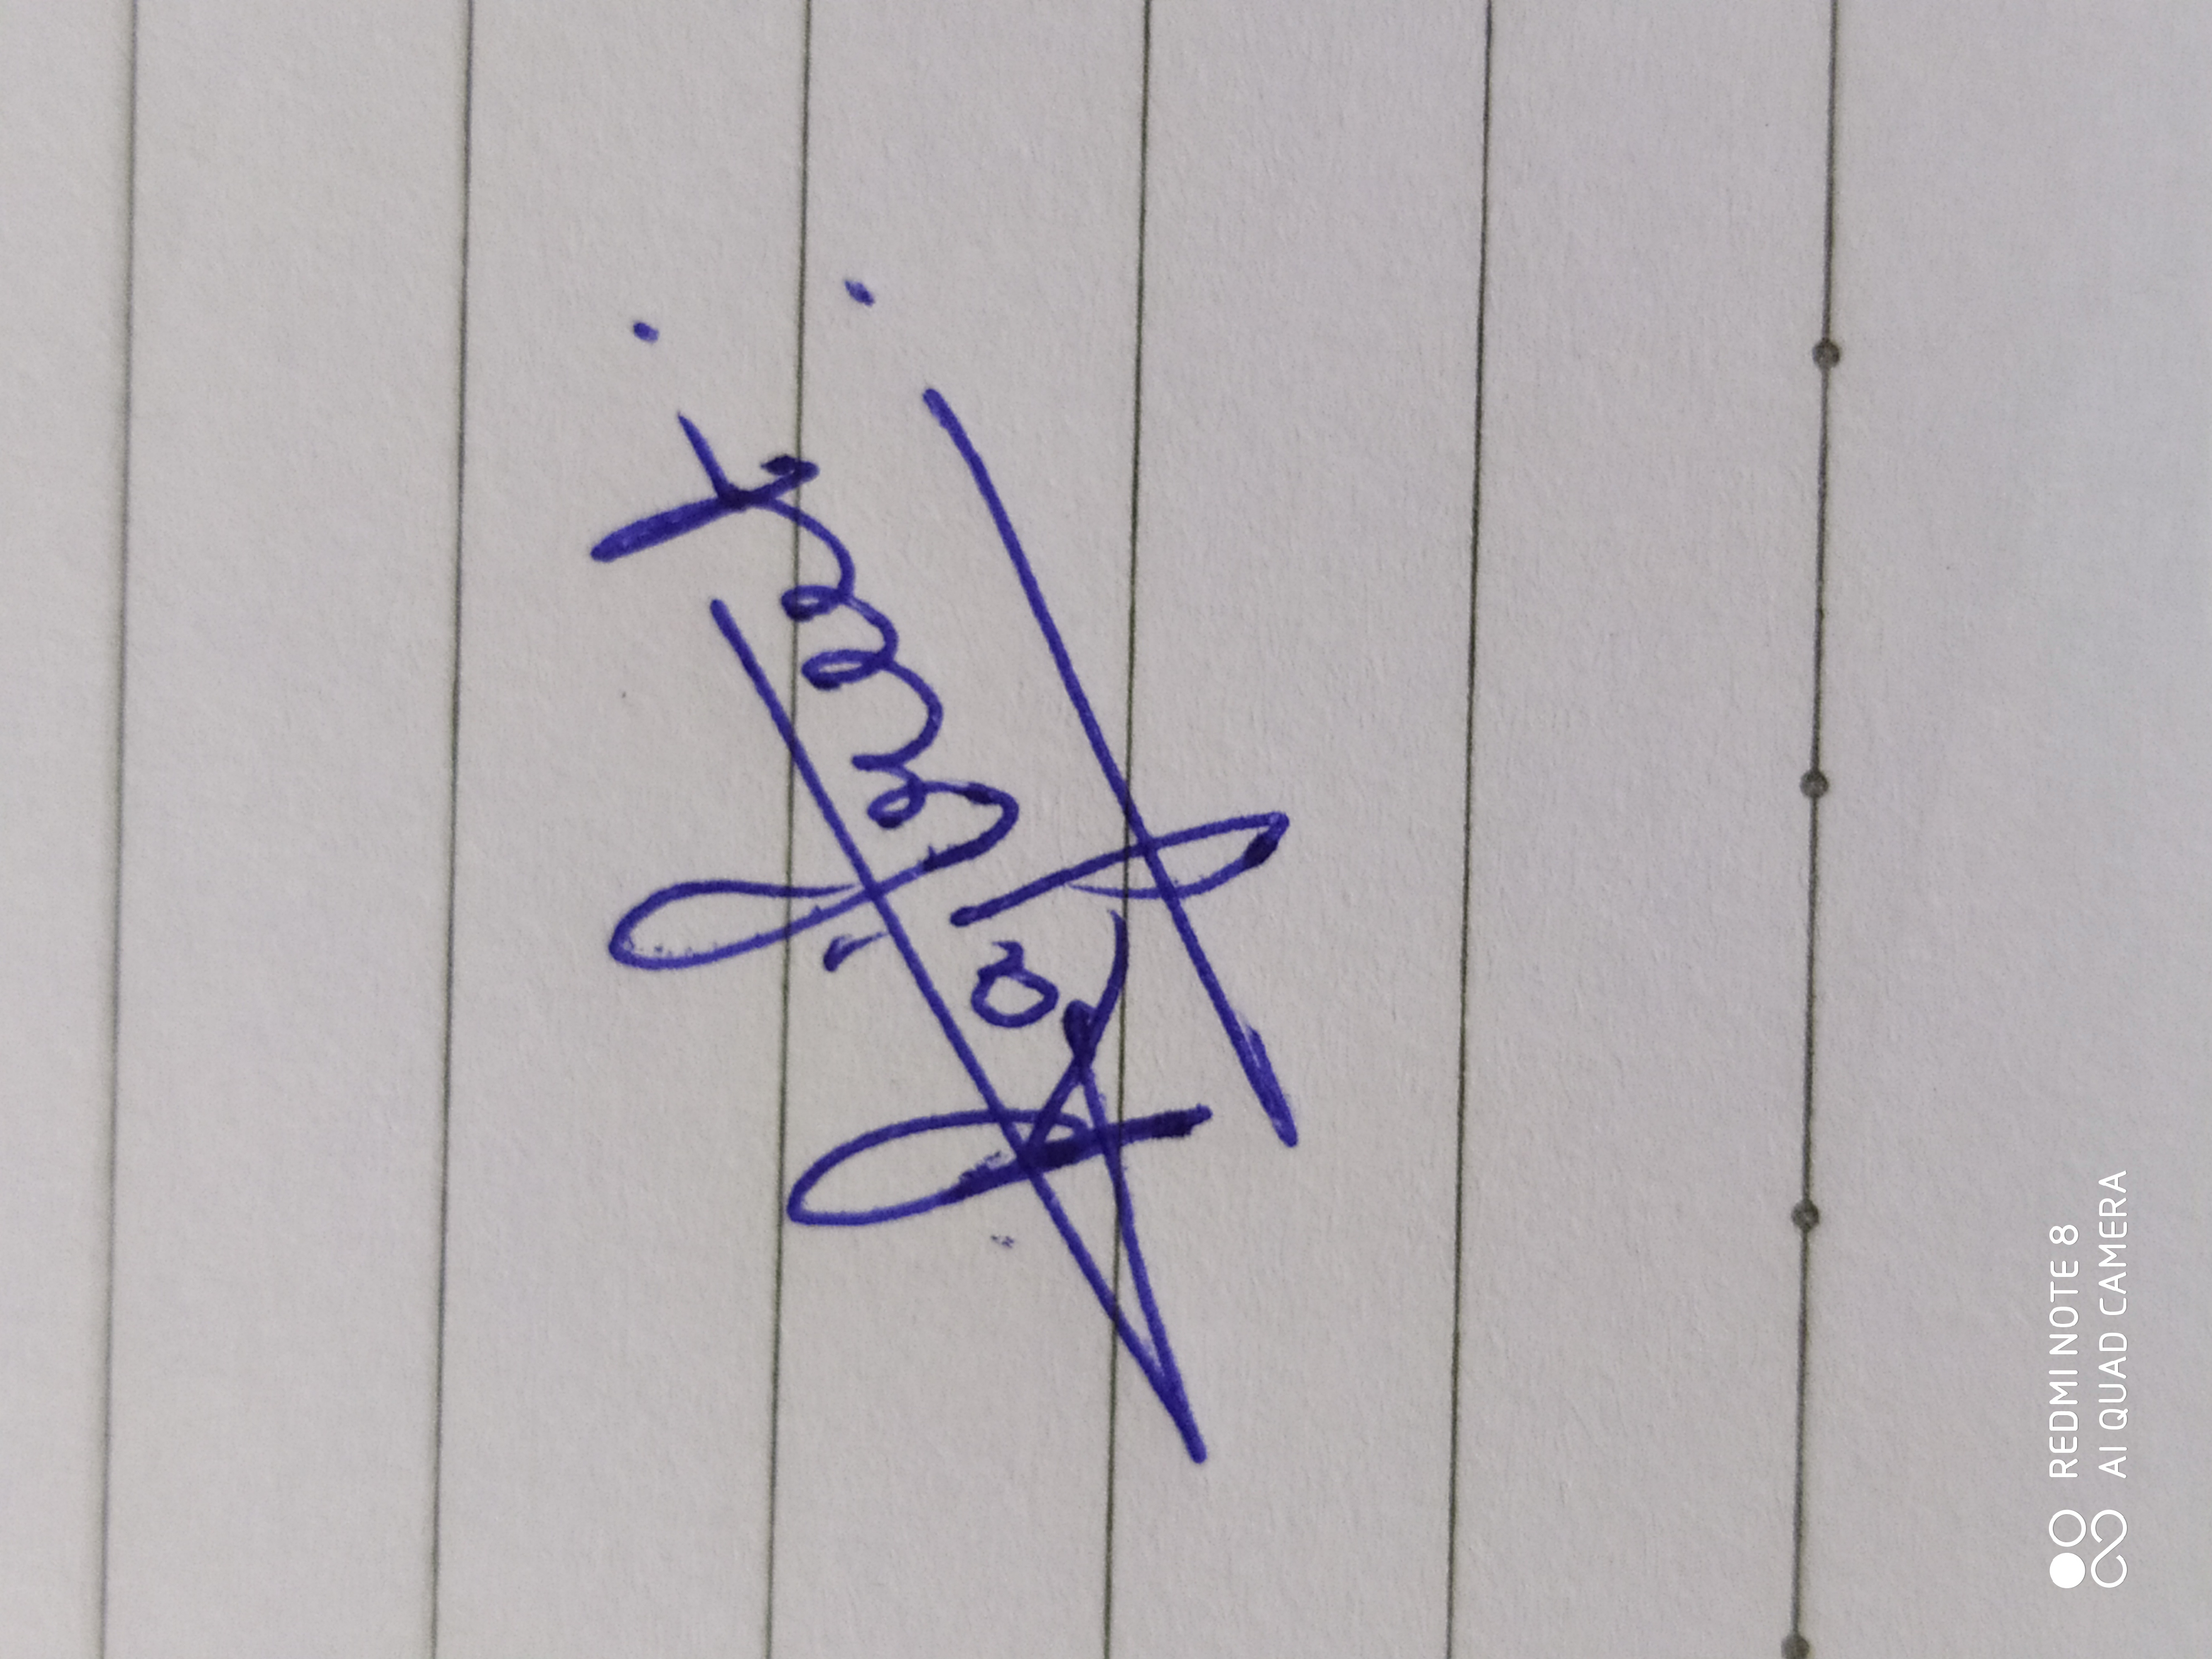 Rajpreet
REDMI NOTE 8
AI QUAD CAMERA